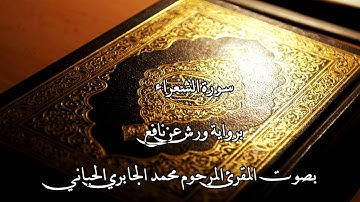 سورة الشعراء
برواية ورش عن نافع
بصوت المقرئ المرحوم محمد الجابري الحياني